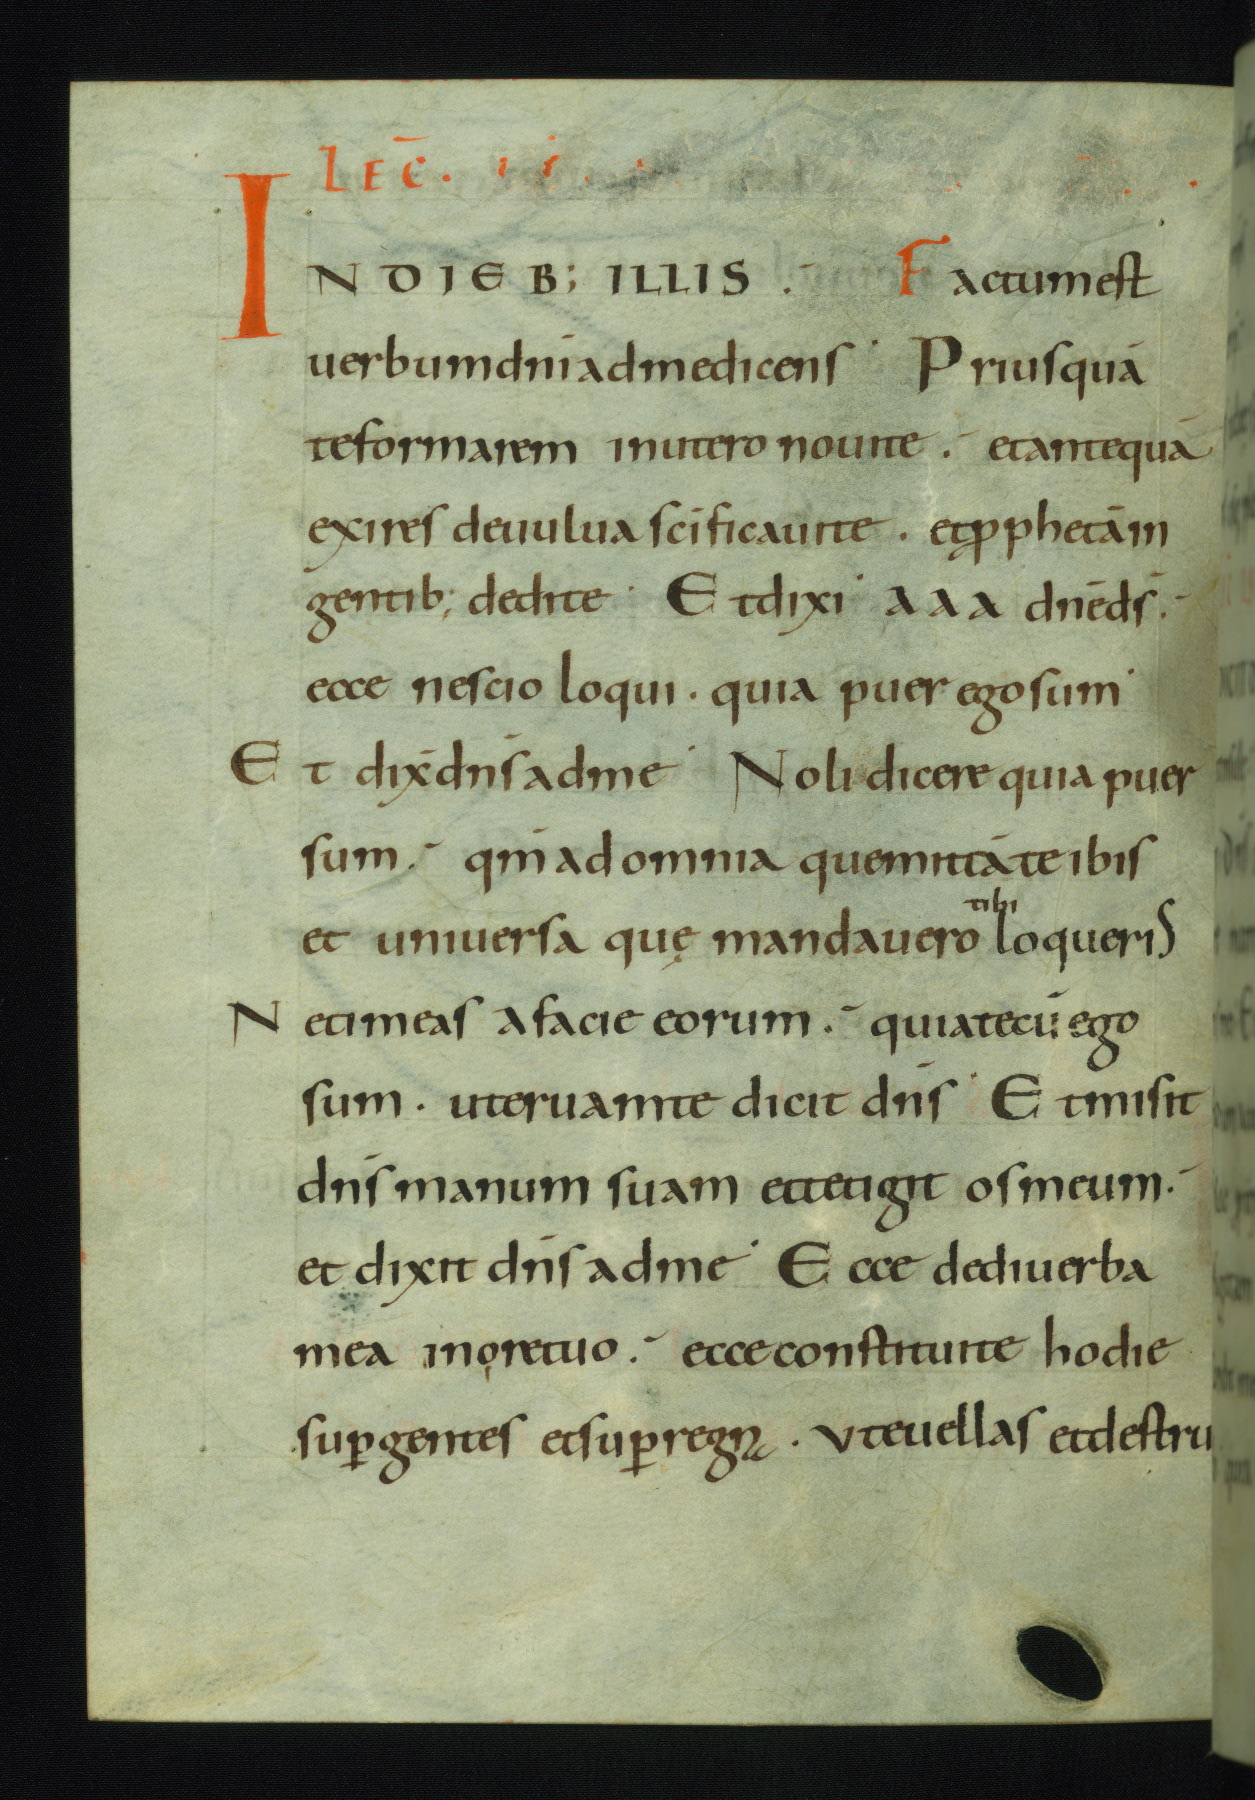 LEC̄. II.
INDIEB; ILLIS. Factumest
uerbumdn̄iadmedicens Priusquā
teformarem inuteronouite. etantequā
exires deuulua sc̄ificauite. etꝓphetāin
gentib; dedite Etdixi aaa dn̄eds̄.
ecce nescio loqui. quia puer egosum
Et dix̄dn̄sadme Nolidicere quiapuer
sum. qm̄adomnia quemittāteibis
et uniuersa quę mandauero tibi loqueris
Netimeas afacie eorum. quiatecūego
sum. uteruamte dicit dn̄s Etmisit
dn̄smanum suam ettetigit osmeum.
et dixit dn̄sadme Ecce dediuerba
mea inoretuo. ecceconstituite hodie
suꝑgentes etsuꝑregna. Vteuellas etdestru